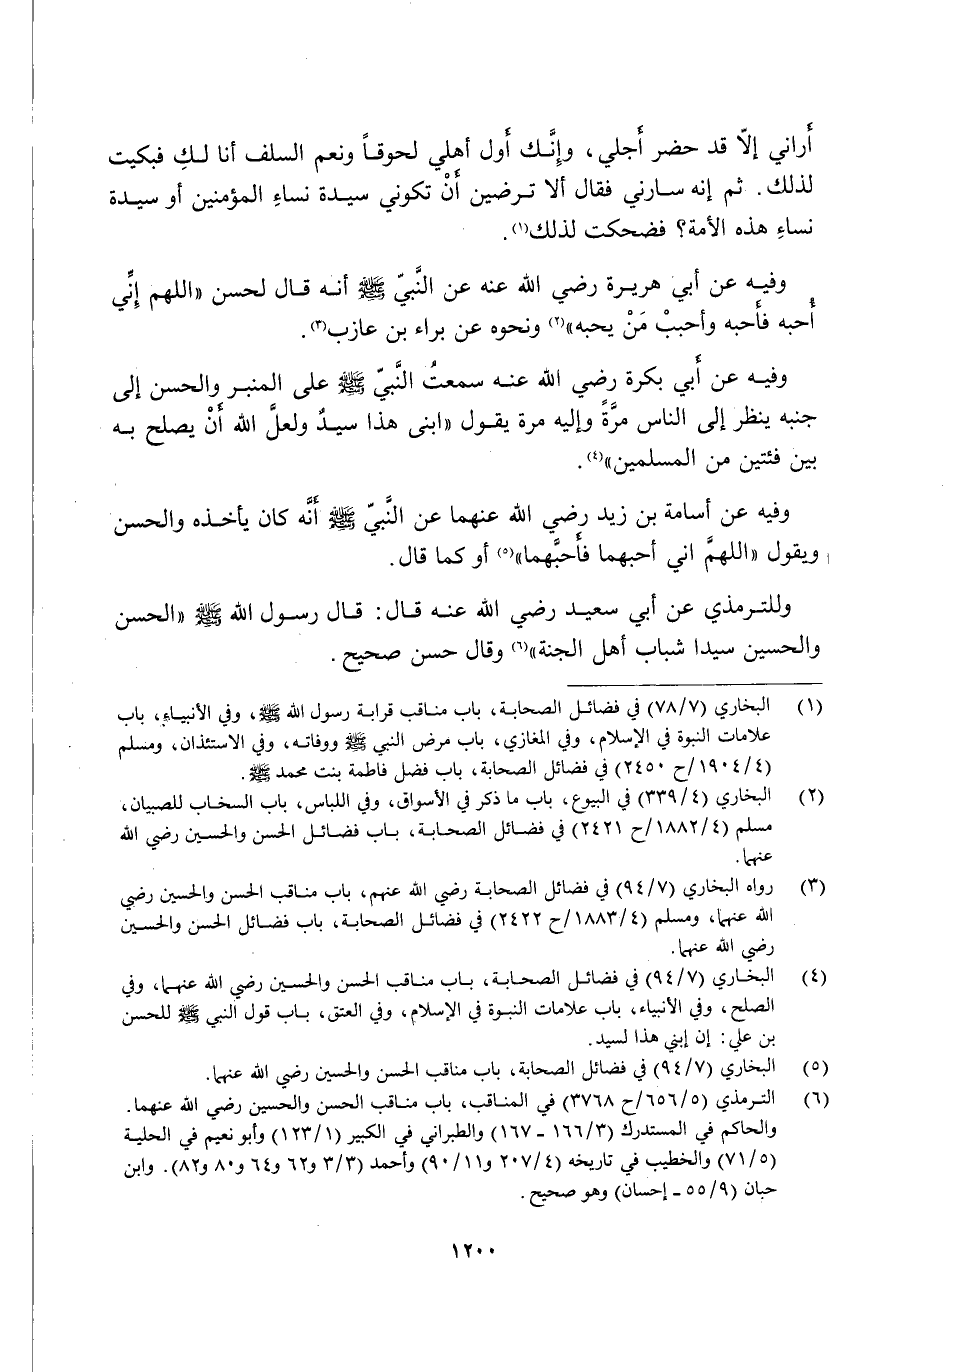 أَراني إلّا قد حضر أَجلي، وإِنَّك أَول أهلي لحوقاً ونعم السلف أنا لكِ فبكيت
لذلك. ثم إنه سارني فقال ألا ترضين أَنْ تكوني سيدة نساءِ المؤمنين أو سيدة
نساءِ هذه الأمة؟ فضحكت لذلك(١).
وفيه عن أبي هريرة رضي الله عنه عن النَّبيّ ﷺ أنه قال لحسن «اللهم إِنِّي
أُحبه فأَحبه وأحببْ مَنْ يحبه»(٢) ونحوه عن براء بن عازب(٣).
وفيه عن أَبي بكرة رضي الله عنه سمعتُ النَّبيّ ﷺ على المنبر والحسن إلى
جنبه ينظر إلى الناس مرَّةً وإليه مرة يقول «ابنى هذا سيدٌ ولعلَّ الله أَنْ يصلح به
بين فئتين من المسلمين»(٤).
وفيه عن أسامة بن زيد رضي الله عنهما عن النَّبيّ ﷺ أَنَّه كان يأخذه والحسن
ويقول «اللهمَّ اني أحبهما فأَحبَّهما»(٥) أو كما قال.
وللترمذي عن أبي سعيد رضي الله عنه قال: قال رسول الله ﷺ «الحسن
والحسين سيدا شباب أهل الجنة»(٦) وقال حسن صحيح.
(١) البخاري (٧٨/٧) في فضائل الصحابة، باب مناقب قرابة رسول الله ﷺ، وفي الأنبياءِ، باب
علامات النبوة في الإسلام، وفي المغازي، باب مرض النبي ﷺ ووفاته، وفي الاستئذان، ومسلم
(١٩٠٤/٤/ح ٢٤٥٠) في فضائل الصحابة، باب فضل فاطمة بنت محمد ﷺ.
(٢) البخاري (٣٣٩/٤) في البيوع، باب ما ذكر في الأسواق، وفي اللباس، باب السخاب للصبيان،
مسلم (١٨٨٢/٤/ح ٢٤٢١) في فضائل الصحابة، باب فضائل الحسن والحسين رضي الله
عنهما.
(٣) رواه البخاري (٩٤/٧) في فضائل الصحابة رضي الله عنهم، باب مناقب الحسن والحسين رضي
الله عنهما، ومسلم (١٨٨٣/٤/ح ٢٤٢٢) في فضائل الصحابة، باب فضائل الحسن والحسين
رضي الله عنهما.
(٤) البخاري (٩٤/٧) في فضائل الصحابة، باب مناقب الحسن والحسين رضي الله عنهما، وفي
الصلح، وفي الأنبياء، باب علامات النبوة في الإسلام، وفي العتق، باب قول النبي ﷺ للحسن
بن علي: إن إبني هذا لسيد.
(٥) البخاري (٩٤/٧) في فضائل الصحابة، باب مناقب الحسن والحسين رضي الله عنهما.
(٦) الترمذي (٦٥٦/٥/ح ٣٧٦٨) في المناقب، باب مناقب الحسن والحسين رضي الله عنهما.
والحاكم في المستدرك (١٦٦/٣ ـ ١٦٧) والطبراني في الكبير (١٢٣/١) وأبو نعيم في الحلية
(٧١/٥) والخطيب في تاريخه (٢٠٧/٤ و٩٠/١١) وأحمد (٣/٣ و٦٢ و٦٤ و٨٠ و٨٢). وابن
حبان (٥٥/٩ ـ إحسان) وهو صحيح.
١٢٠٠